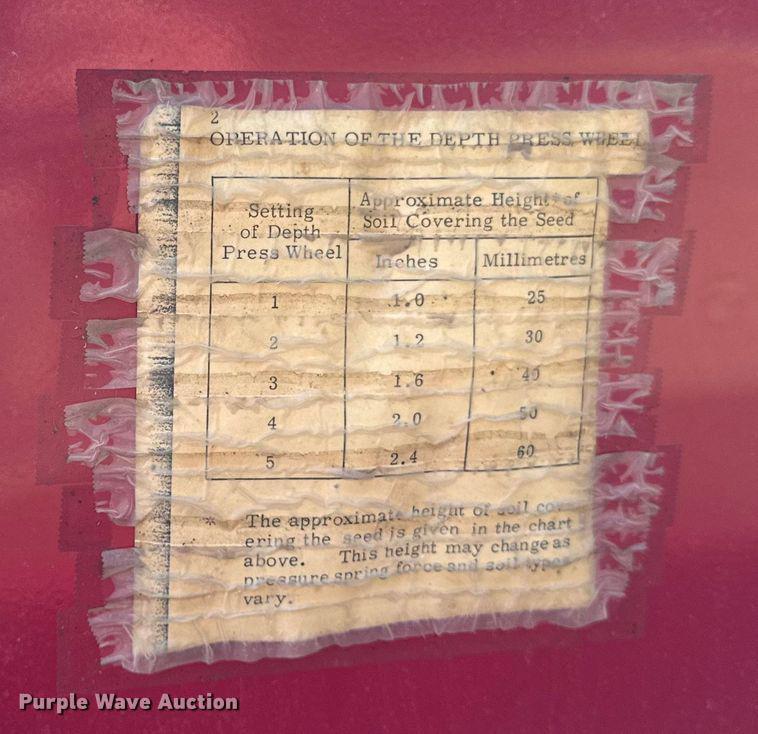 2
OPERATION OF THE DEPTH PRESS WHEEL
Setting
of Depth
Press Wheel
Approximate Height of
Soil Covering the Seed
Inches
Millimetres
1 1.0 25
2 1.2 30
3 1.6 40
4 2.0 50
5 2.4 60
* The approximate height of soil cov-
ering the seed is given in the chart
above. This height may change as
pressure spring force and soil types
vary.
Purple Wave Auction